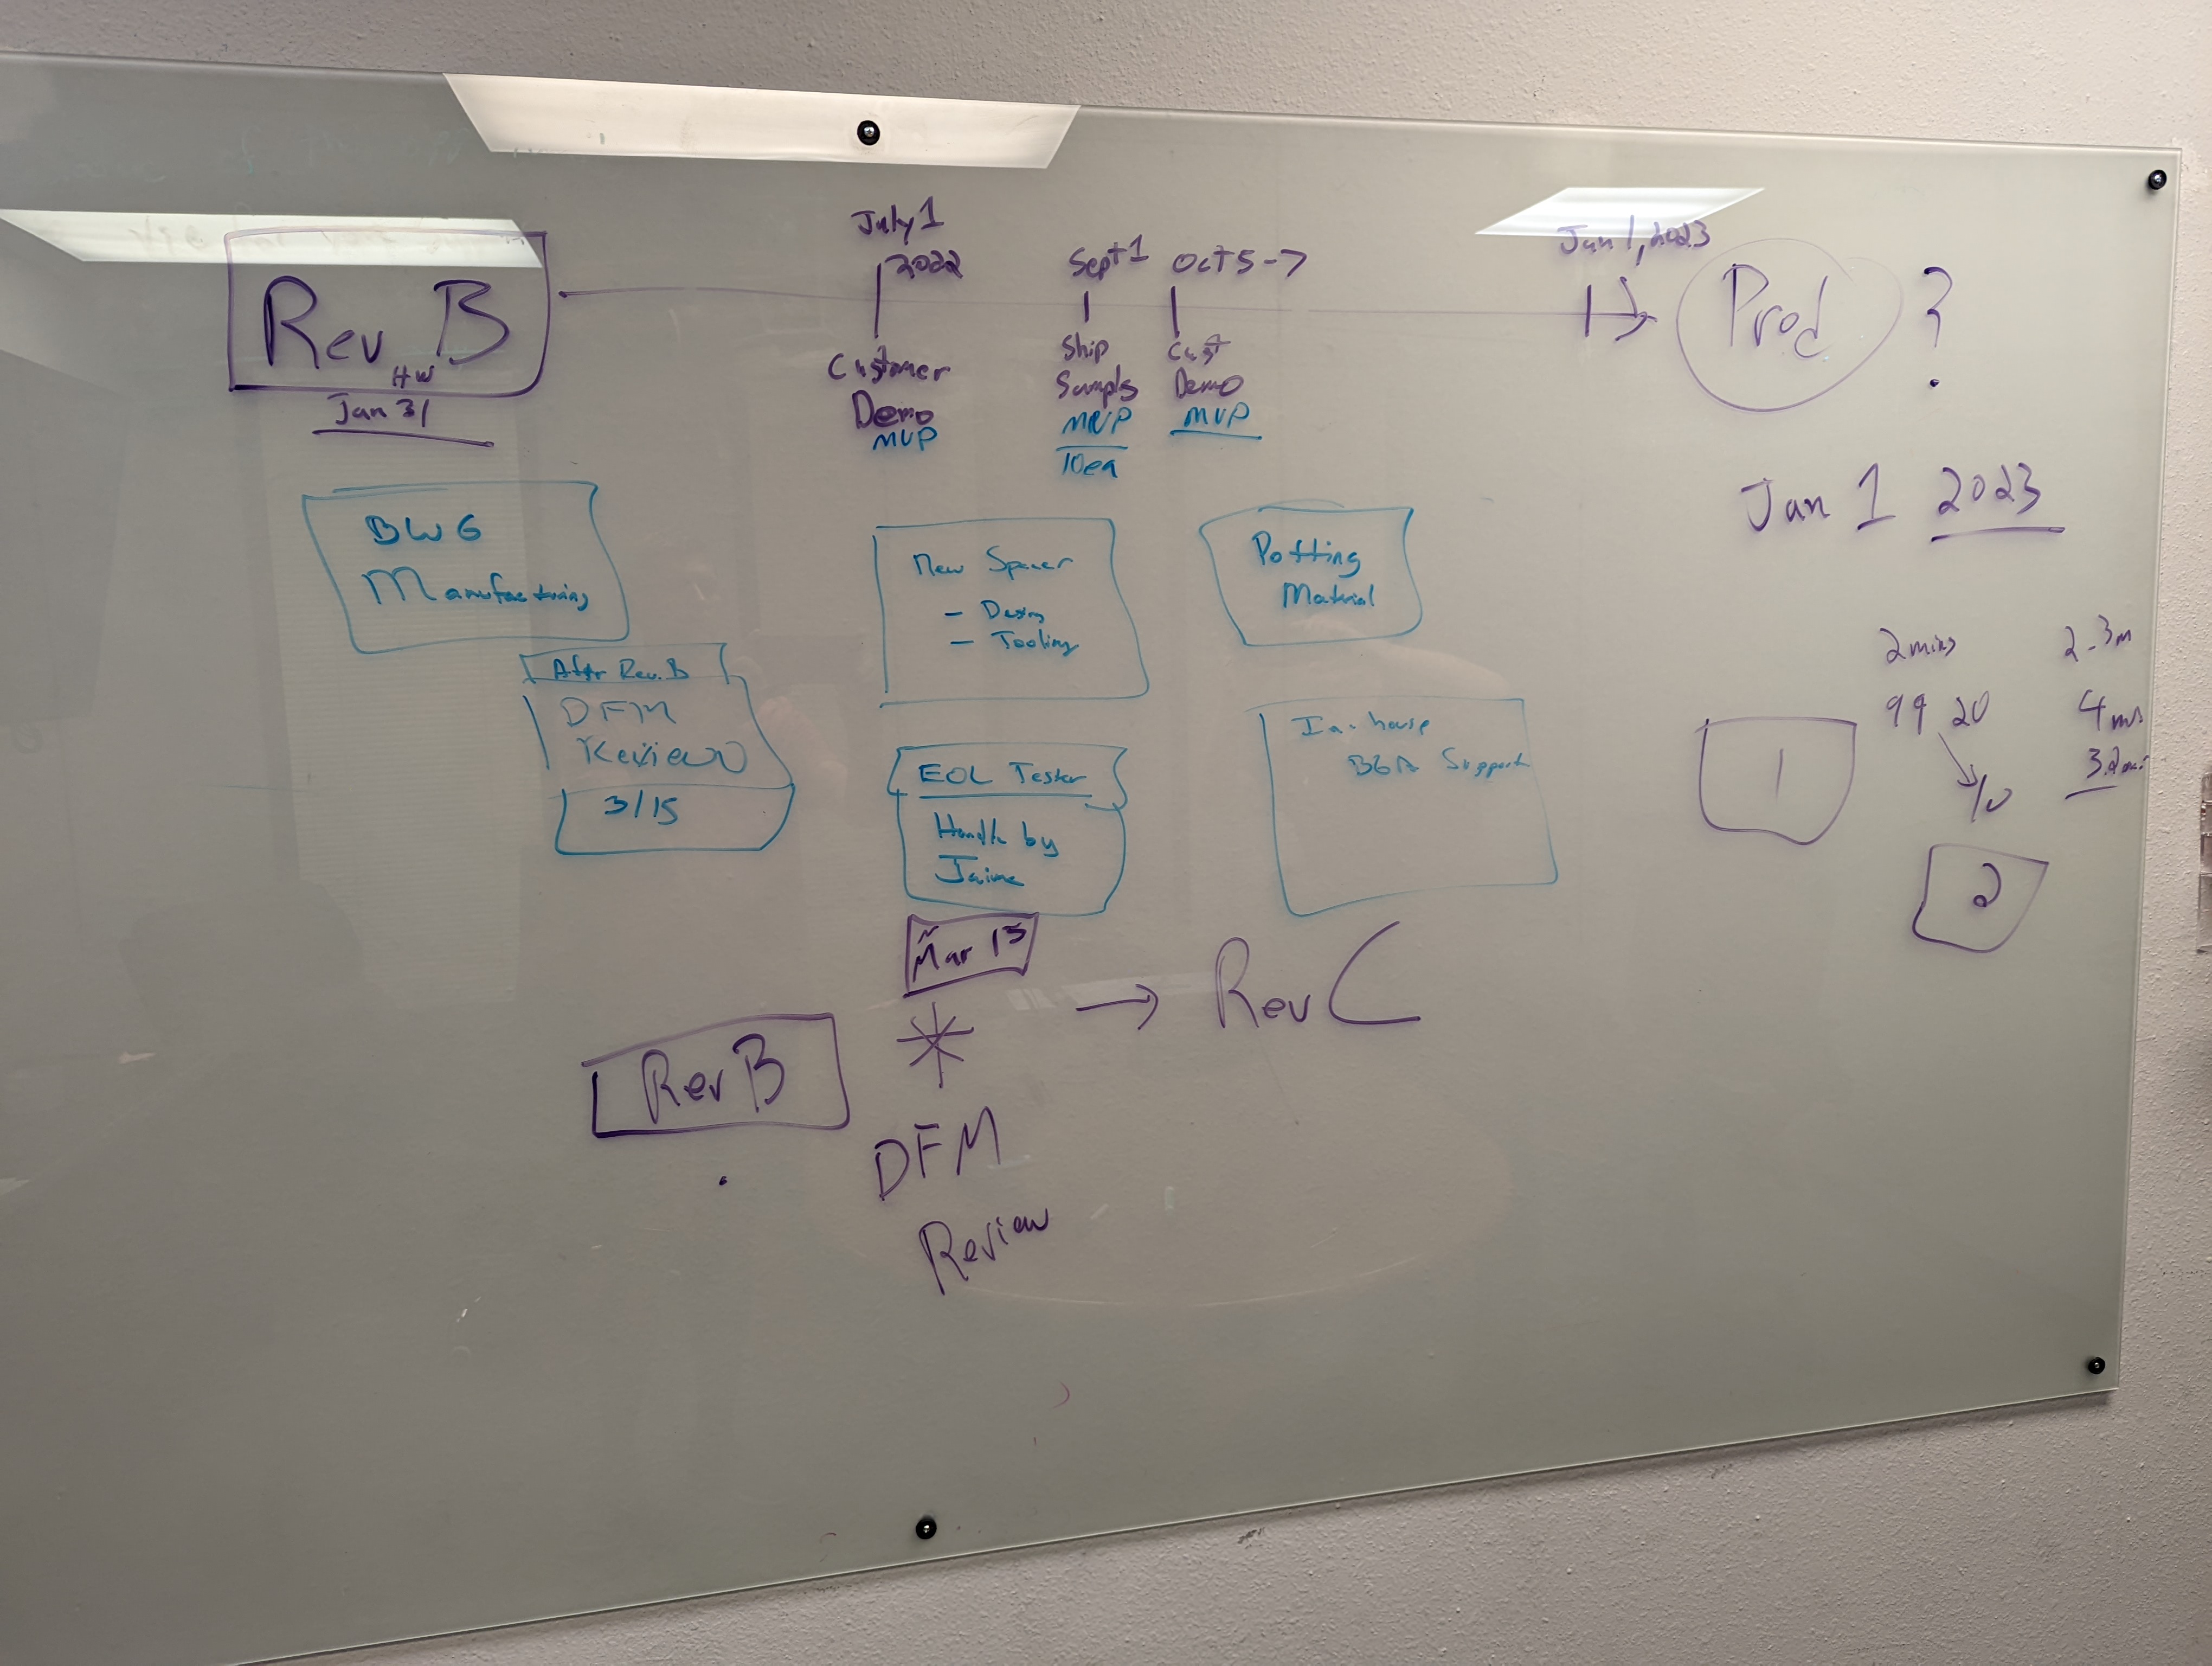 Rev B
HW
Jan 31
July 1
2022
Customer
Demo
MVP
Sept 1
Ship
Sampls
MVP
10ea
Oct 5-7
Cust
Demo
MVP
Jan 1, 2023
Prod ?
Jan 1 2023
BWG
Manufacturing
After Rev. B
DFM
Review
3/15
New Spacer
- Design
- Tooling
Potting
Material
EOL Tester
Handle by
Jaime
In-house
BGA Support
2 mins
99 20
2-3m
4 ms
1
2
Mar 15
Rev B
→ Rev C
DFM
Review